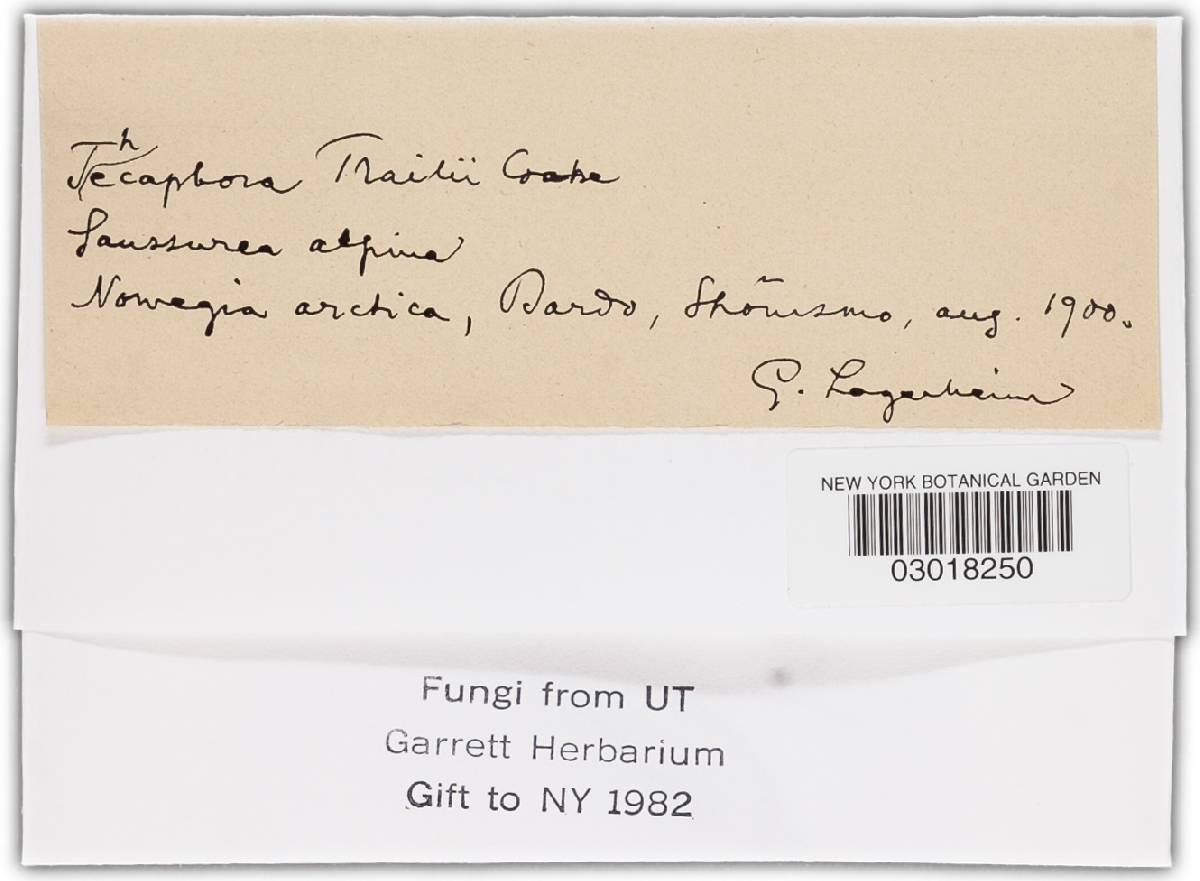 Thecaphora Trailii Cooke
Saussurea alpina
Norvegia arctica, Bardo, Shönsmo, aug. 1900.
G. Lagerheim
NEW YORK BOTANICAL GARDEN
03018250
Fungi from UT
Garrett Herbarium
Gift to NY 1982